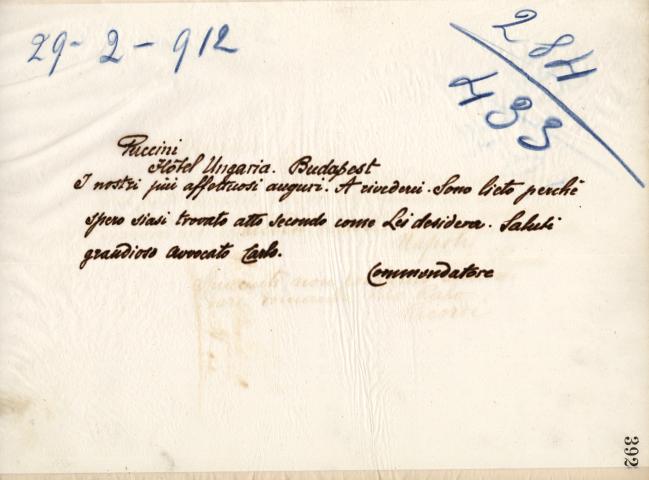 29 - 2 - 912
284
433
Puccini
Hôtel Ungaria. Budapest
I nostri più affettuosi auguri. A rivederci. Sono lieto perchè
spero siasi trovato atto secondo come Lei desidera. Saluti
grandioso avvocato Carlo.
Commendatore
392